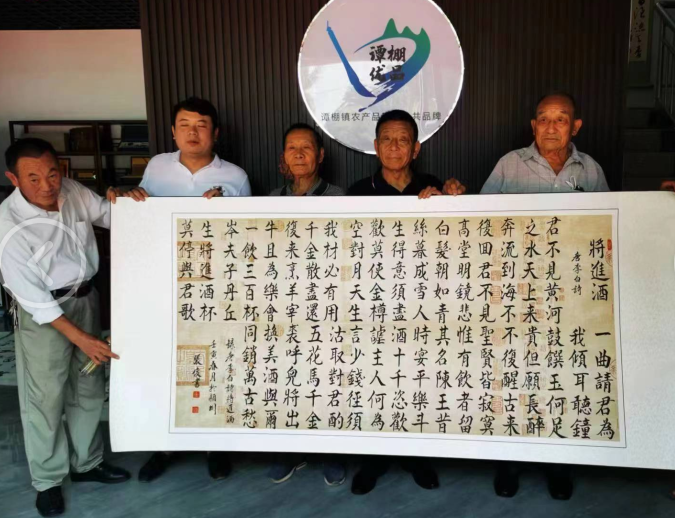 谭棚
优品
谭棚镇农产品
共品牌
将進酒
唐李白詩
君不見黃河
之水天上来
奔流到海不
復回君不見
高堂明鏡悲
白髮朝如青
絲暮成雪人
生得意須盡
歡莫使金樽
空對月天生
我材必有用
千金散盡還
復来烹羊宰
牛且為樂會
一飲三百杯
岑夫子丹丘
生將進酒杯
莫停與君歌
一曲請君為
我傾耳聽鐘
鼓饌玉何足
貴但願長醉
不復醒古来
聖賢皆寂寞
惟有飲者留
其名陳王昔
時宴平樂斗
酒十千恣歡
謔主人何為
言少錢徑須
沽取對君酌
五花馬千金
裘呼兒將出
換美酒與爾
同銷萬古愁
唐李白詩將進酒
壬寅春月於潁州